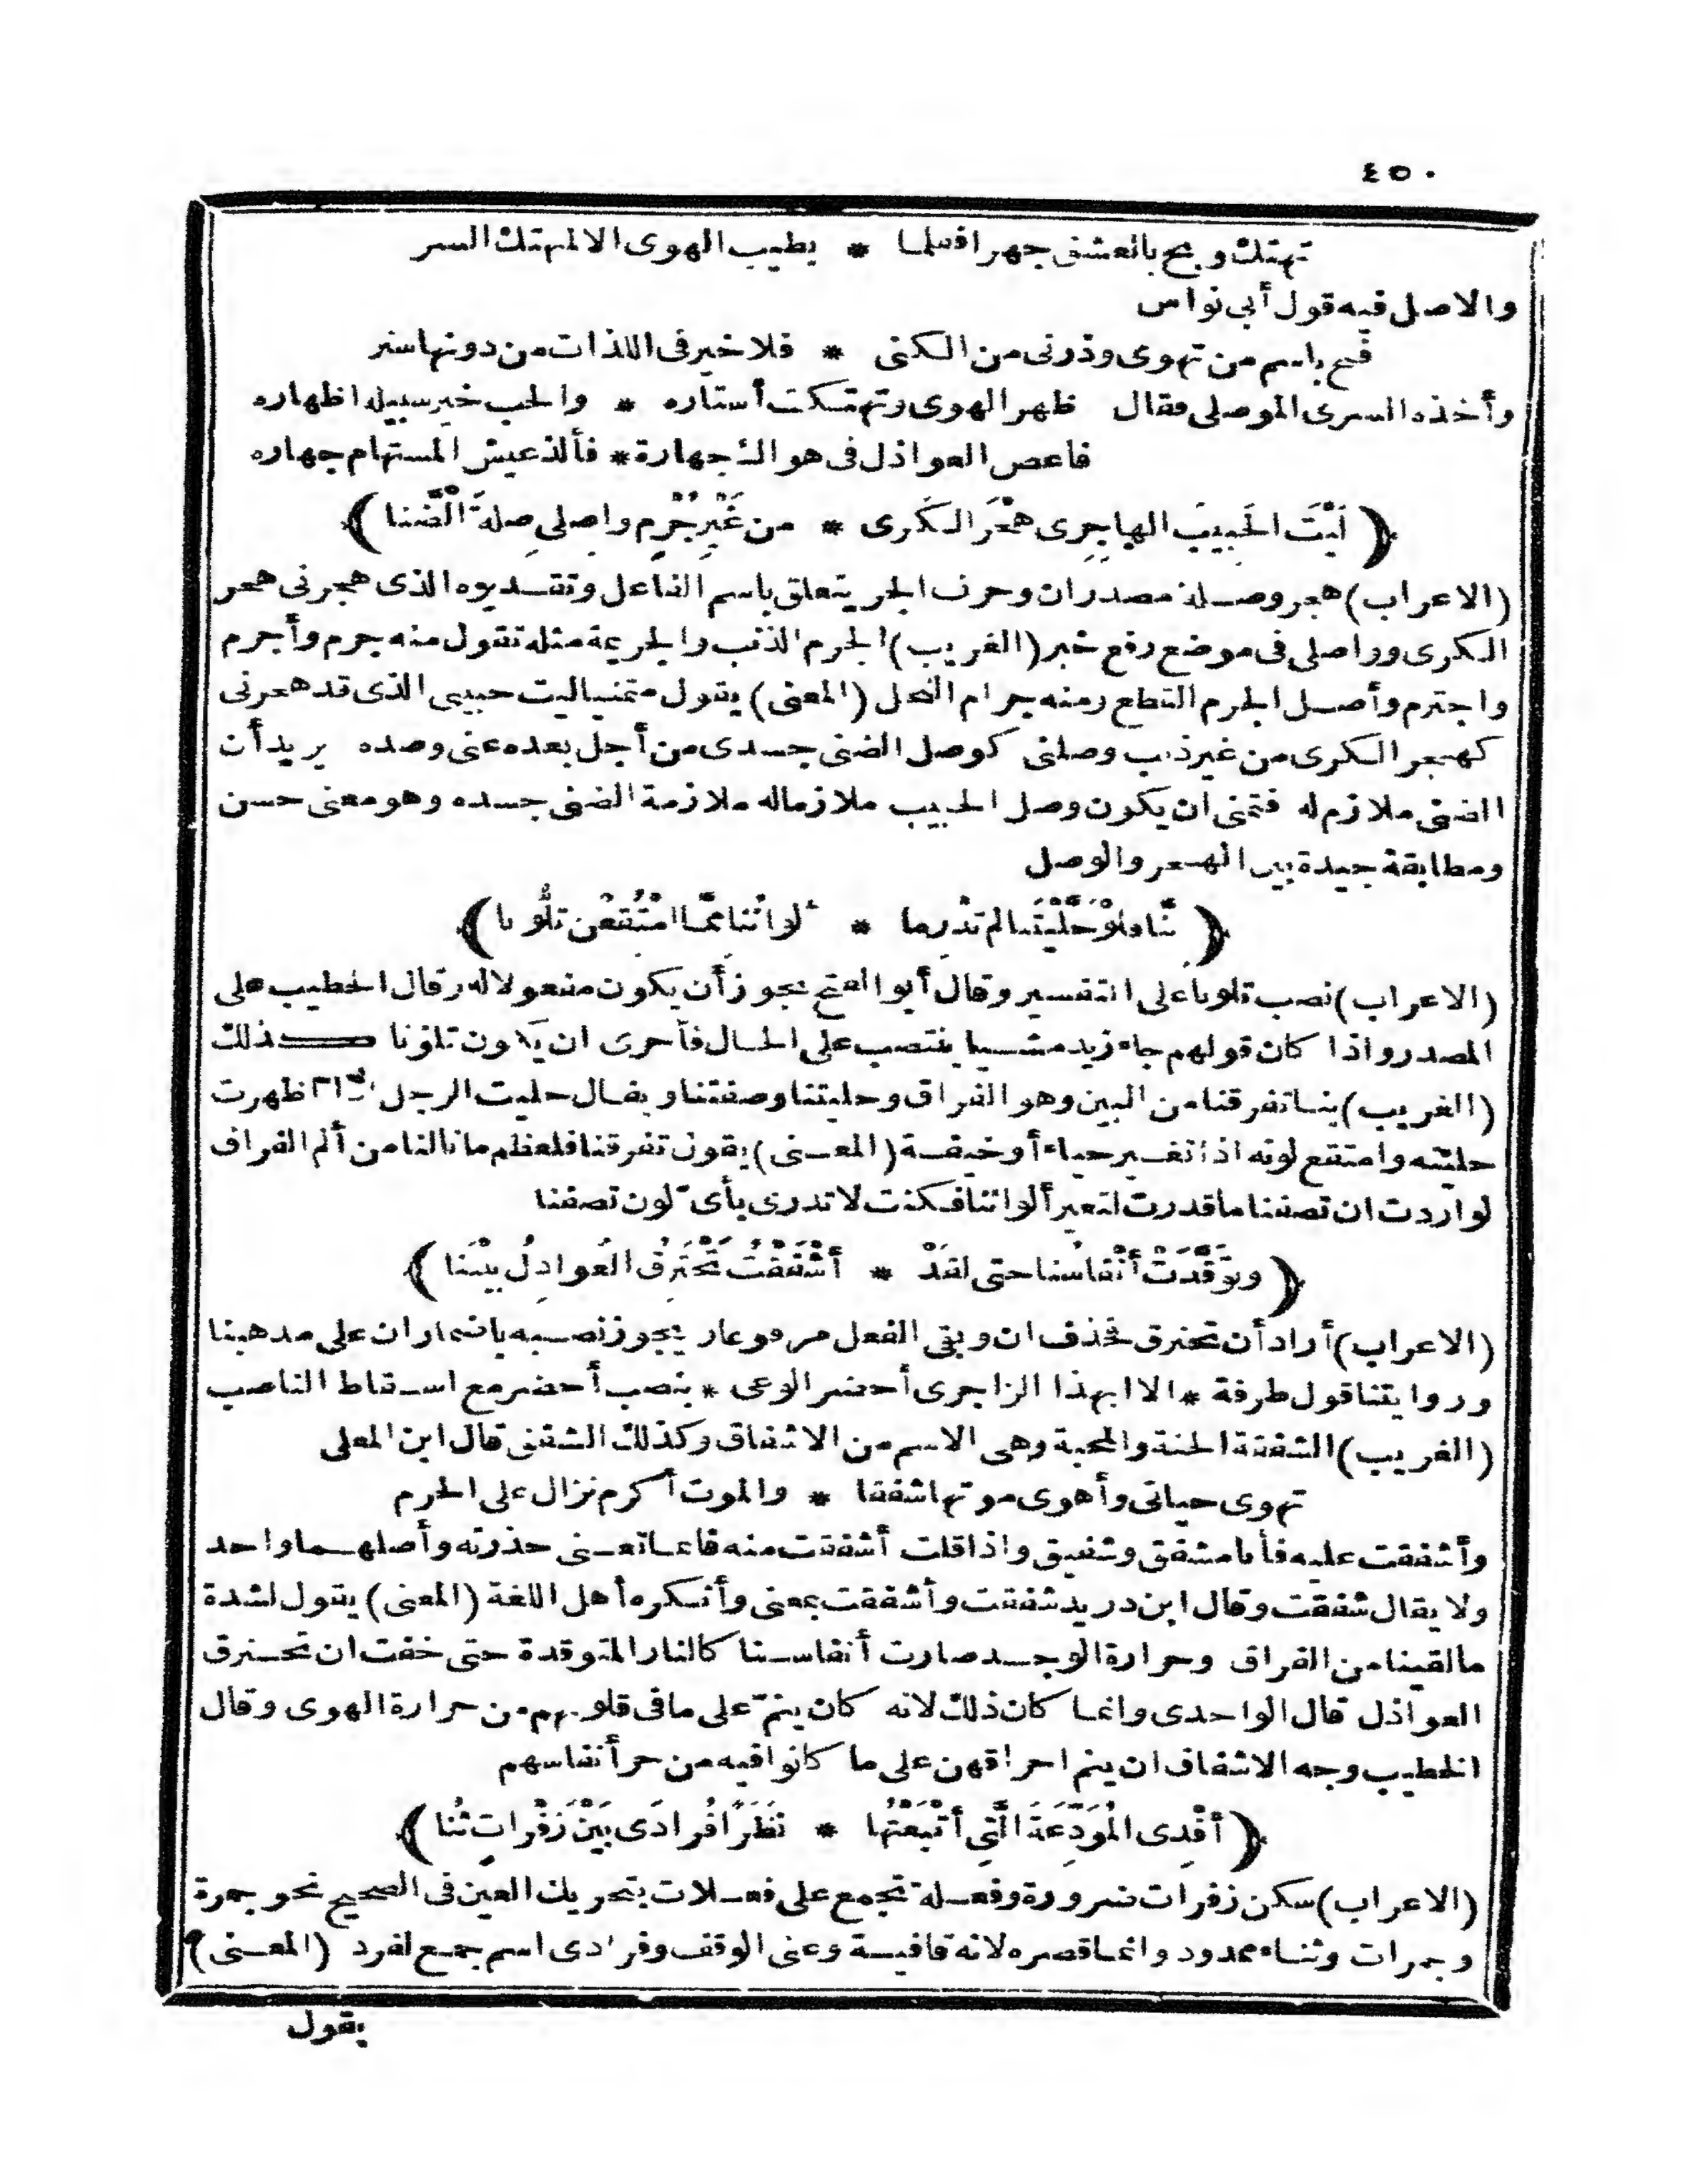 ٤٥٠
تهتك وبح بالعشق جهرا فقلما * يطيب الهوى الا لمنهتك الستر
والاصل فيه قول أبى نواس
فبح باسم من تهوى وذرنى من الكنى * فلا خير فى اللذات من دونها ستر
وأخذه السرى الموصلى فقال ظهر الهوى وتهتكت أستاره * والحب خير سبيله اظهاره
فاعص العواذل فى هواك جهارة * فألذ عيش المستهام جهاره
﴿ لَيْتَ الحَبيبَ الهاجِرِى هَجْرَ الكَرى * من غَيْرِ جُرْمٍ واصِلِى صِلَةَ الْضَّنا ﴾
(الاعراب) هجر وصلة مصدران وحرف الجر يتعلق باسم الفاعل وتقديره الذى هجرنى هجر
الكرى وواصلى فى موضع رفع خبر (الغريب) الجرم الذنب والجريمة مثله تقول منه جرم وأجرم
واجترم وأصل الجرم القطع ومنه جرام النخل (المعنى) يقول متمنيا ليت حبيبى الذى قد هجرنى
كهجر الكرى من غير ذنب وصلنى كوصل الضنى جسدى من أجل بعده عنى وصده يريد أن
الضنى ملازم له فتمنى ان يكون وصل الحبيب ملازما له ملازمة الضنى جسده وهو معنى حسن
ومطابقة جيدة بين الهجر والوصل
﴿ بِنَّا فلوْ حَلَّيْتَنا لم تَدْرِ ما * ألوانُنا ممّا امْتُقِعْنَ تلَوُّنا ﴾
(الاعراب) نصب تلونا على التفسير وقال أبو الفتح يجوز أن يكون مفعولا له وقال الخطيب على
المصدر واذا كان قولهم جاء زيد مشيا ينتصب على الحال فأحرى ان يكون تلونا كذلك
(الغريب) بنا تفرقنا من البين وهو الفراق وحليتنا وصفتنا ويقال حليت الرجل اذا ظهرت
حليته وامتقع لونه اذا تغير حياء أو خيفة (المعنى) يقول تفرقنا فلعظم ما نالنا من ألم الفراق
لو أردت ان تصفنا ما قدرت لتغير ألواننا فكنت لا تدرى بأىّ لون تصفنا
﴿ وتَوَقَّدَتْ أنْفاسُنا حتى لقَدْ * أشْفَقْتُ تَحْتَرِقُ العَواذِلُ بيْنَنا ﴾
(الاعراب) أراد أن تحترق فحذف ان وبقى الفعل مرفوعا ويجوز نصبه باضمار ان على مذهبنا
وروايتنا قول طرفة * الا ايهذا الزاجرى أحضر الوغى * بنصب أحضر مع اسقاط الناصب
(الغريب) الشفقة الحنة والمحبة وهى الاسم من الاشفاق وكذلك الشفق قال ابن المعلى
تهوى حياتى وأهوى موتها شفقا * والموت أكرم نزال على الحرم
وأشفقت عليه فأنا مشفق وشفيق واذا قلت أشفقت منه فانما تعنى حذرته وأصلهما واحد
ولا يقال شفقت وقال ابن دريد شفقت وأشفقت بمعنى وأنكره أهل اللغة (المعنى) يقول لشدة
ما لقينا من الفراق وحرارة الوجد صارت أنفاسنا كالنار المتوقدة حتى خفت ان تحترق
العواذل قال الواحدى وانما كان ذلك لانه كان ينمّ على ما فى قلوبهم من حرارة الهوى وقال
الخطيب وجه الاشفاق ان ينم احراقهن على ما كانوا فيه من حر أنفاسهم
﴿ أفْدِى المُوَدِّعَةَ الَّتِى أتْبَعْتُها * نَظَرًا فُرادَى بَيْنَ زَفْراتٍ ثُنا ﴾
(الاعراب) سكن زفرات ضرورة وفعلة تجمع على فعلات بتحريك العين فى الصحيح نحو جمرة
وجمرات وثناء ممدود وانما قصره لانه قافية وعنى الوقف وفرادى اسم جمع لفرد (المعنى)
يقول